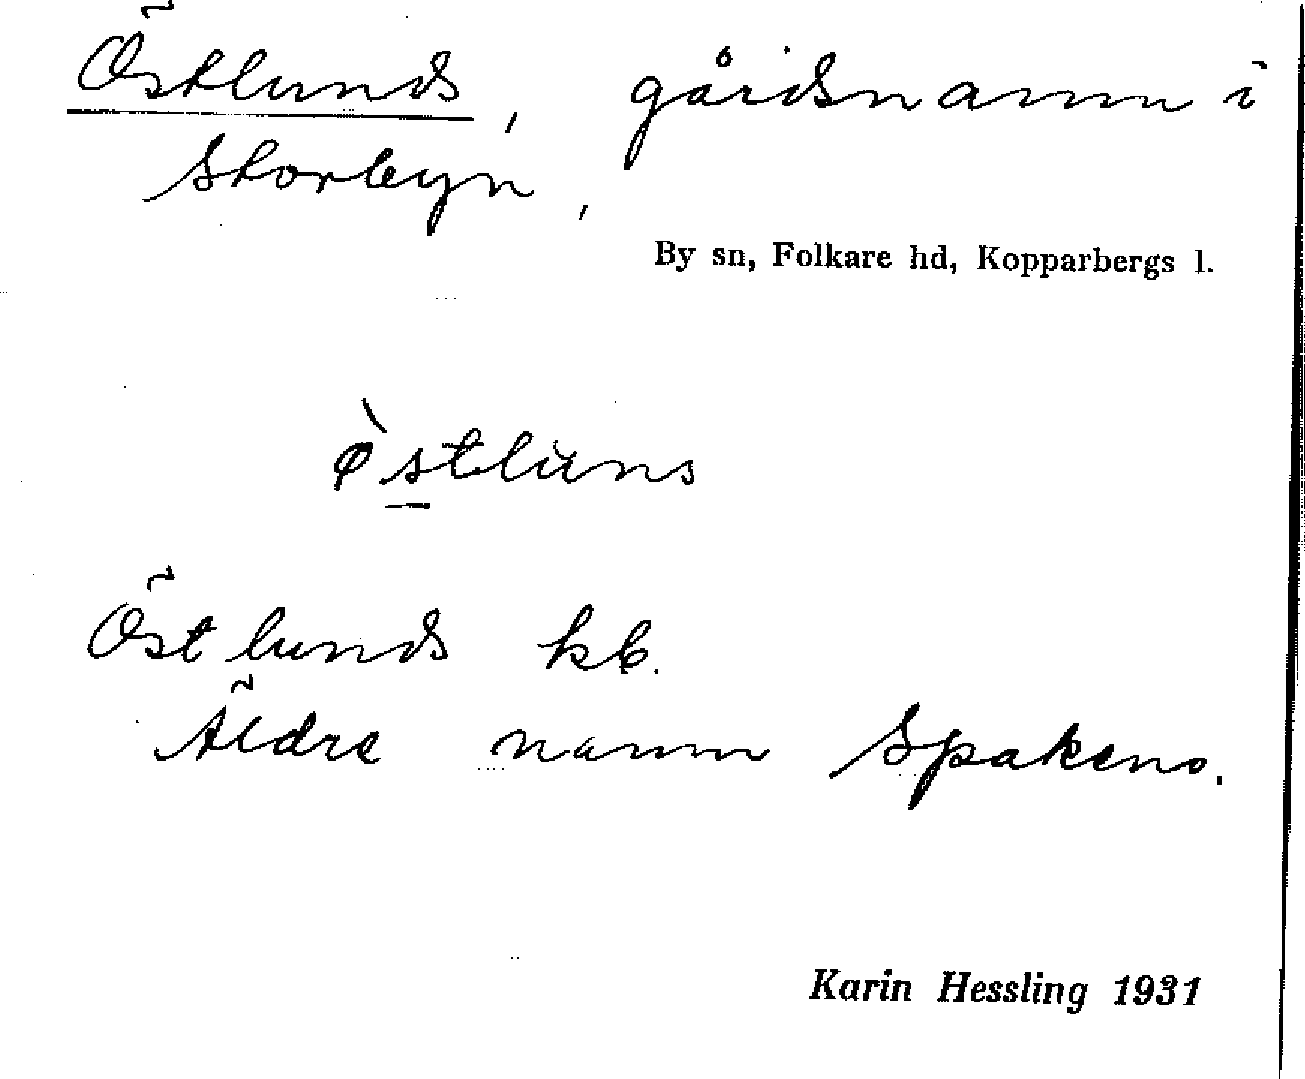 Östlunds, gårdsnamn i
Storbyn,
By sn, Folkare hd, Kopparbergs l.
ø̀stluns
Östlunds kb.
Äldre namn Spakens.
Karin Hessling 1931